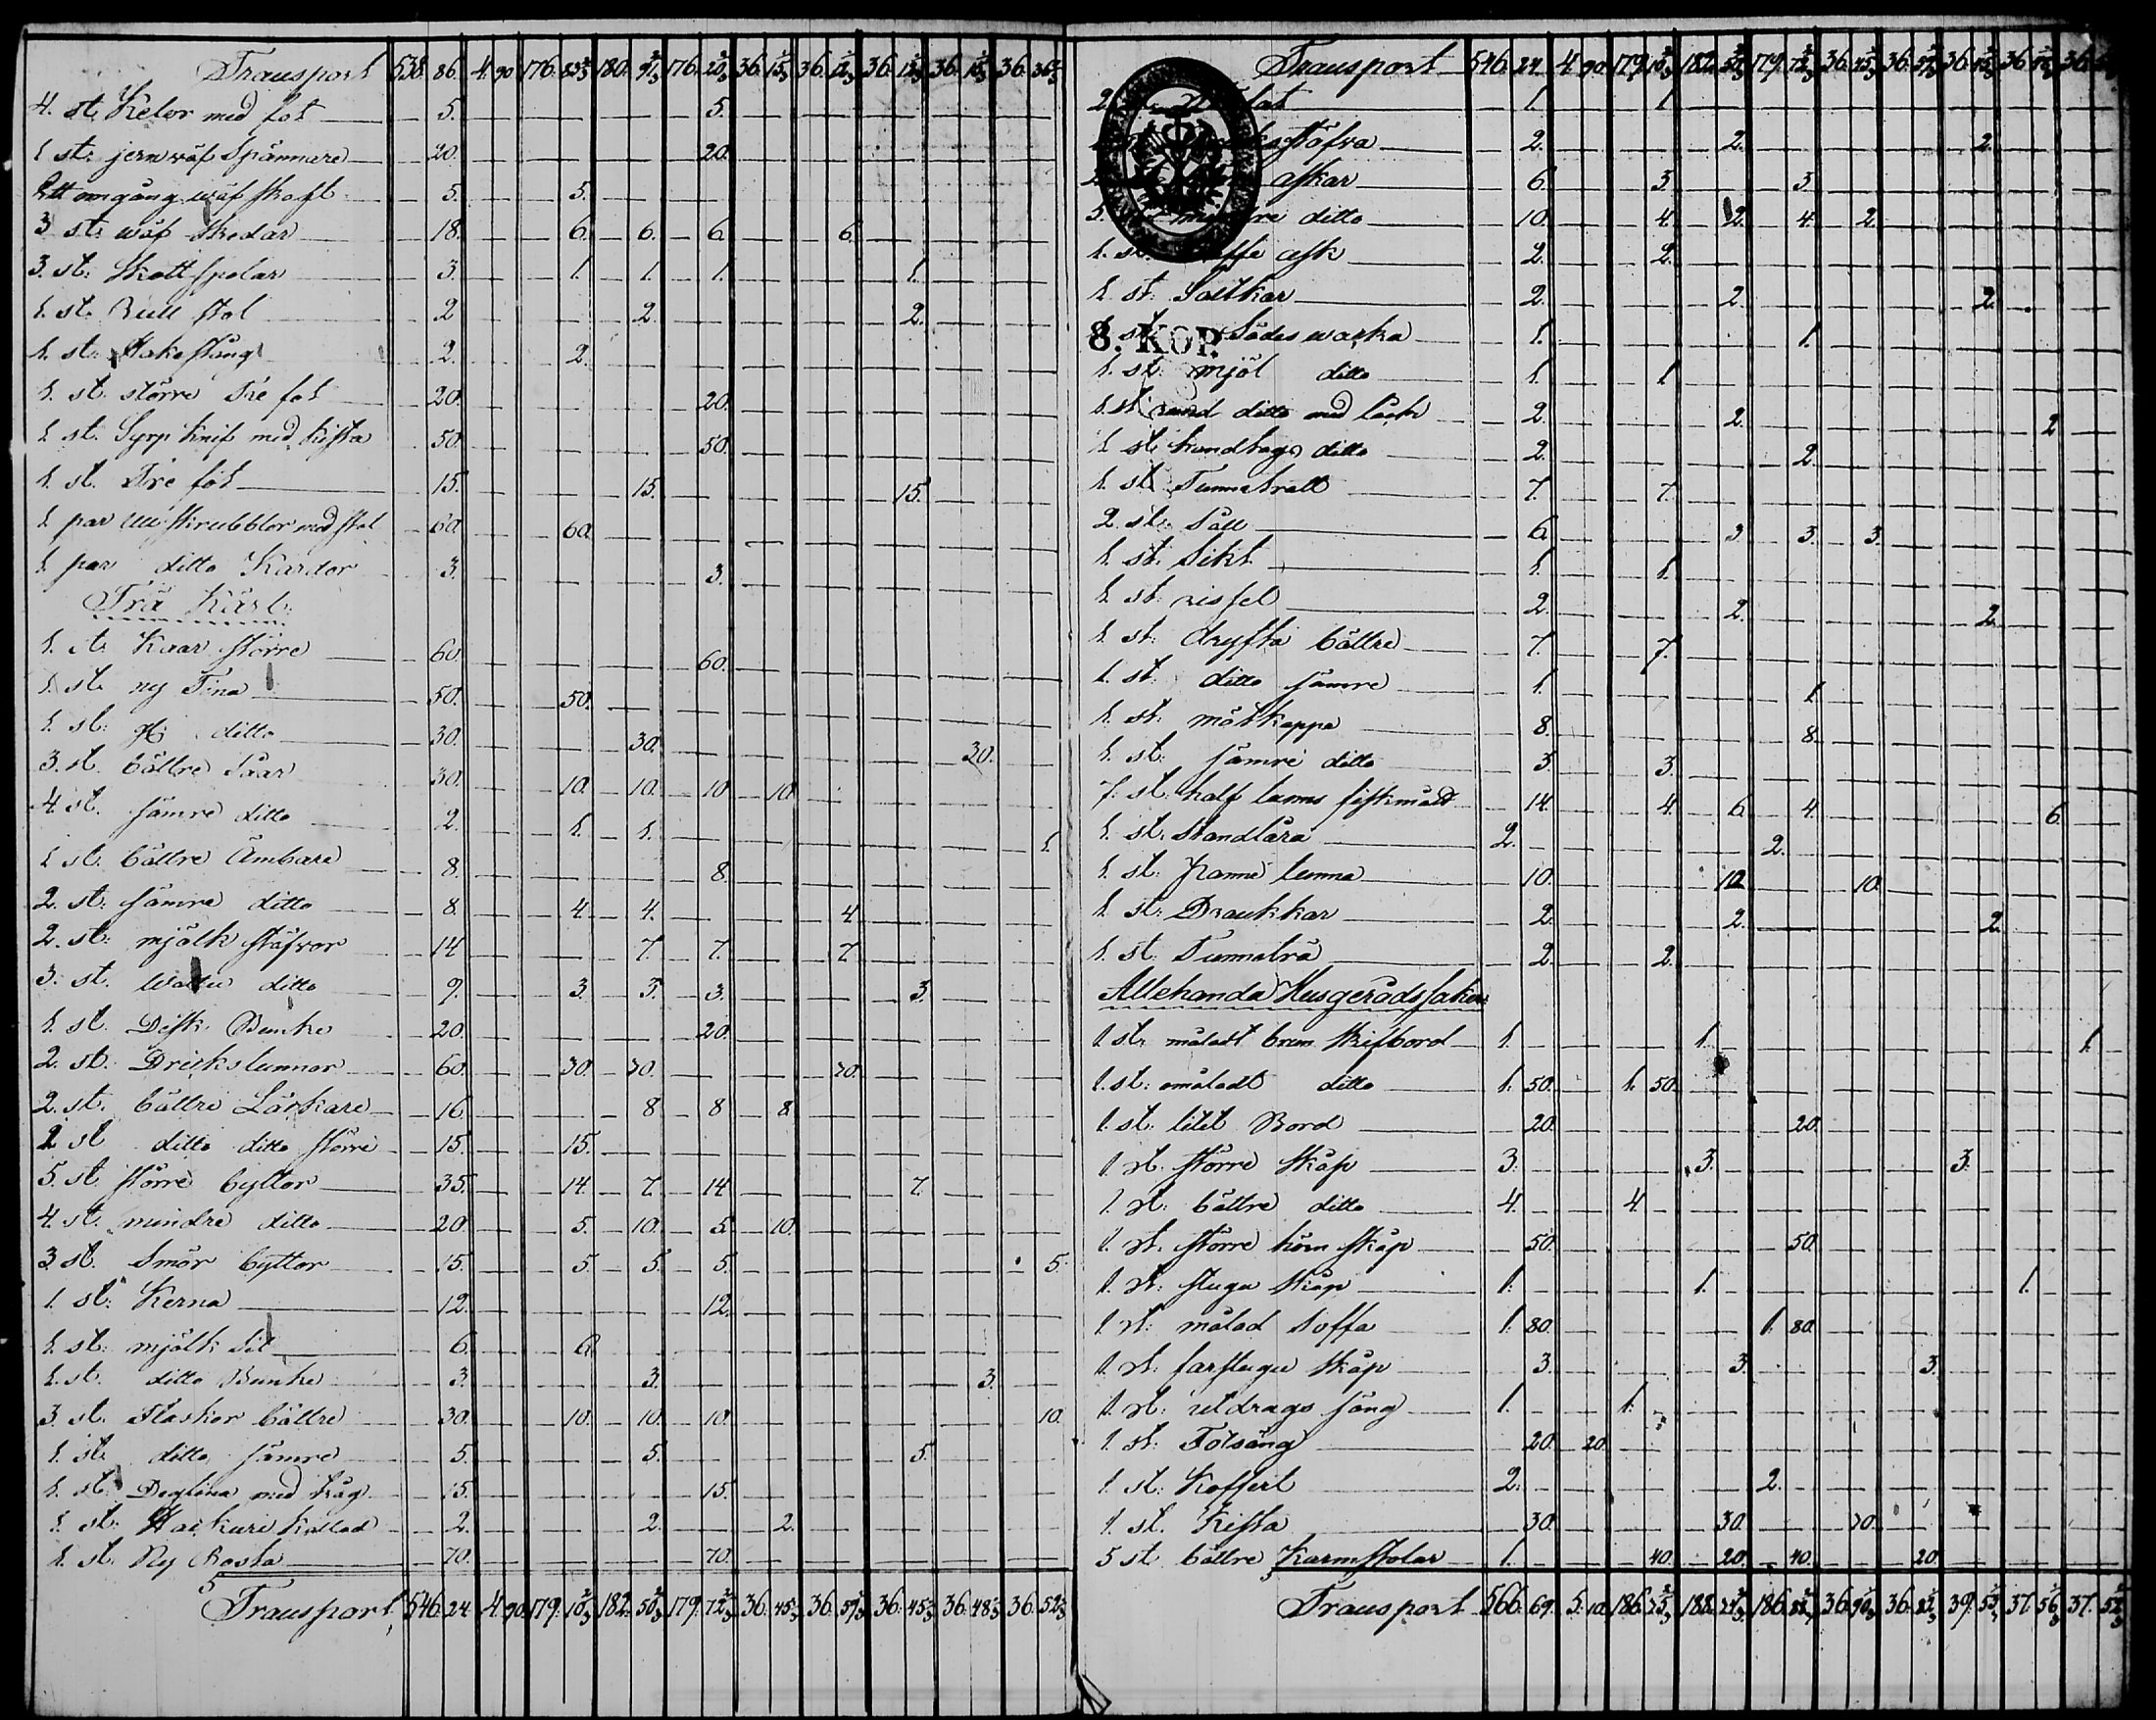 Transport 538. 86. 4. 90 176. 180. 176. 36. 36. 36. 36. 36.
4. st. med fot 5. 5.
1 st. jern wäf Spännare 20. 20.
Ett omgång wäf skaft 5. 5.
3 st. wäf skedar 18. 6. 6. 6. 6.
3. st. Skottspolar 3. 1. 1. 1. 1.
1. st. Rull stol 2 2. 2.
1. st. Hake stång 2. 2.
1. st. större Tre fot 20. 20.
1 st. Knif med kista 50. 50.
1. st. Tre fot 15. 15. 15.
1 par Ull skrubblor med stol 60. 60.
1 par ditto Kardor 3. 3.
Trä Kärl.
1. st. Kaar större 60. 60.
1. st. ny Tina 50. 50.
1. st. ditto 30. 30. 30.
3. st. bättre Såar 30. 10. 10. 10 10.
4 st. sämre ditto 2. 1. 1. 1.
1 st. bättre Ämbare 8. 8.
2. st. sämre ditto 8. 4. 4. 4
2. st. mjölk stäfvor 14 7. 7. 7
3. st. Watten ditto 9. 3. 3. 3. 3.
1. st. Disk Bunke 20. 20.
2. st. Drickstunnor 60. 30. 30. 30.
2. st. bättre Lätkare 16. 8 8 8
2 st ditto ditto större 15. 15.
5. st. större byttor 35. 14. 7. 14 7.
4. st. mindre ditto 20. 5. 10. 5. 10.
3 st. Smör byttor 15. 5. 5. 5. 5.
1. st. Kerna 12. 12.
1. st. mjölk sil 6. 6.
1. st. ditto Bunke 3. 3. 3.
3. st. Flaskor bättre 30. 10. 10. 10. 10.
1. st. ditto sämre 5. 5. 5.
1. st. Degtina med tråg 15. 15.
1. st. kallad 2. 2. 2.
1. st. Ny 70. 70.
Transport 546. 24. 4. 90. 179. 182. 179. 36. 36. 36. 36. 36.
Transport 546. 24. 4. 90. 179. 182. 179. 36. 36. 36. 36. 36.
2. 1. 1.
stäfva 2. 2. 2.
askar 6. 3. 3.
5. mindre ditto 10. 4. 2. 4. 2.
1. st. ask 2. 2.
1. st. Saltkar 2. 2. 2.
8. KOP.
1. st. Sädes waska 1. 1.
1. st. mjöl ditto 1. 1
1. st. rund ditto med låck 2. 2. 2
1 st. ditto 2. 2.
1. st. Tunnetratt 7. 7.
2. st. Såll 6. 3. 3. 3.
1. st. Sikt 1. 1.
1. st. rissel 2. 2. 2.
1. st. dryfta bättre 7. 7.
1. st. ditto sämre 1. 1.
1. st. måtkappe 8. 8.
1. st. sämre ditto 3. 3.
7. st. half tunns fiskmått 14. 4. 6. 4. 6.
1. st. standtåra 2. 2.
1. st. tunna 10. 10. 10.
1. st. Drankkar 2. 2. 2.
1. st. Tunnaträ 2. 2.
Allehanda Husgerådssaker
1 st. måladt brun Skifbord 1. 1. 1.
1. st. omåladt ditto 1. 50. 1. 50.
1. st. litet Bord 20. 20.
1 st. större Skåp 3. 3. 3.
1 st. bättre ditto 4. 4.
1. st. större hörn skåp 50. 50.
1. st. stugu skåp 1. 1. 1.
1. st. målad soffa 1. 80. 1. 80.
1. st. farstugu skåp 3. 3. 3.
1. st. utdrags säng 1. 1.
1. st. Tolsäng 20. 20.
1 st. Koffert 2. 2.
1. st. Kista 30. 30. 30.
5 st. bättre Karmstolar 1. 40. 20. 40. 20.
Transport 566. 69. 5. 10. 186. 188. 186. 36. 36. 39. 37. 37.